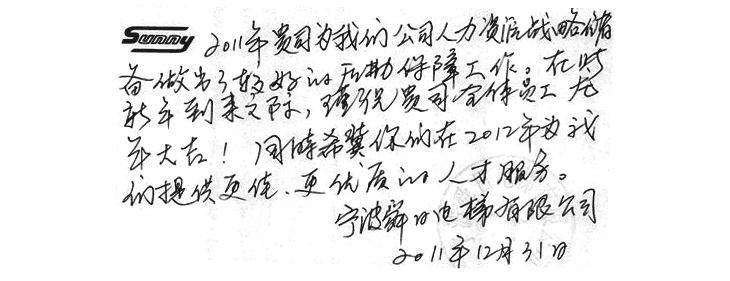 Sunny 2011年贵司为我们公司人力资源战略储
备做出了较好的后勤保障工作。在此
新年到来之际，谨祝贵司全体员工龙
年大吉！同时希冀你们在2012年为我
们提供更佳、更优质的人才服务。
宁波舜日电梯有限公司
2011年12月31日